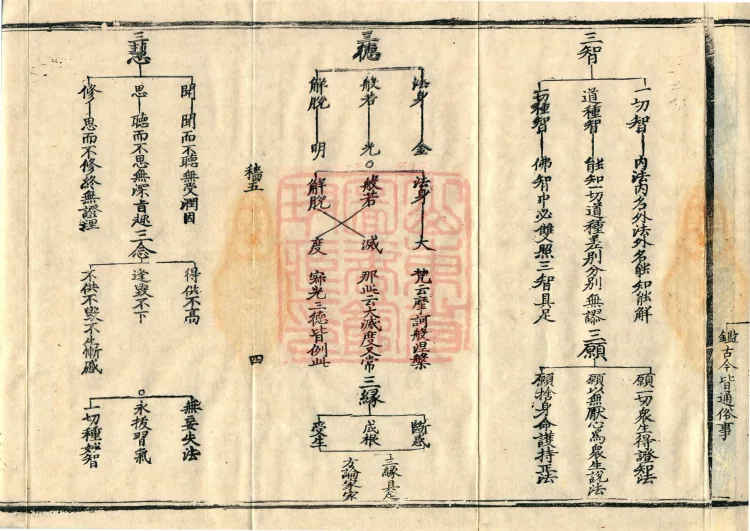 鑑古今皆通俗事
三智
一切智 内法内名外法外名能知能解
道種智 能知一切道種差別分別無謬
一切種智 佛智中必雙照三智具足
三願
願一切衆生得證知法
願以無厭心爲衆生說法
願捨身命護持正法
三德
法身 金
般若 光
解脫 明
法身 大 梵云摩訶般涅槃
般若 滅 那此云大滅度又常
解脫 度 寂光三德皆例此
三緣
斷惑
成根
受生
三緣具足
方論
四
三慧
聞 聞而不聽無受潤因
思 聽而不思無深旨趣
修 思而不修終無證理
三念
得供不高
逢毀不下
不供不毀不生慚
無妄失法
永拔習氣
一切種妙智